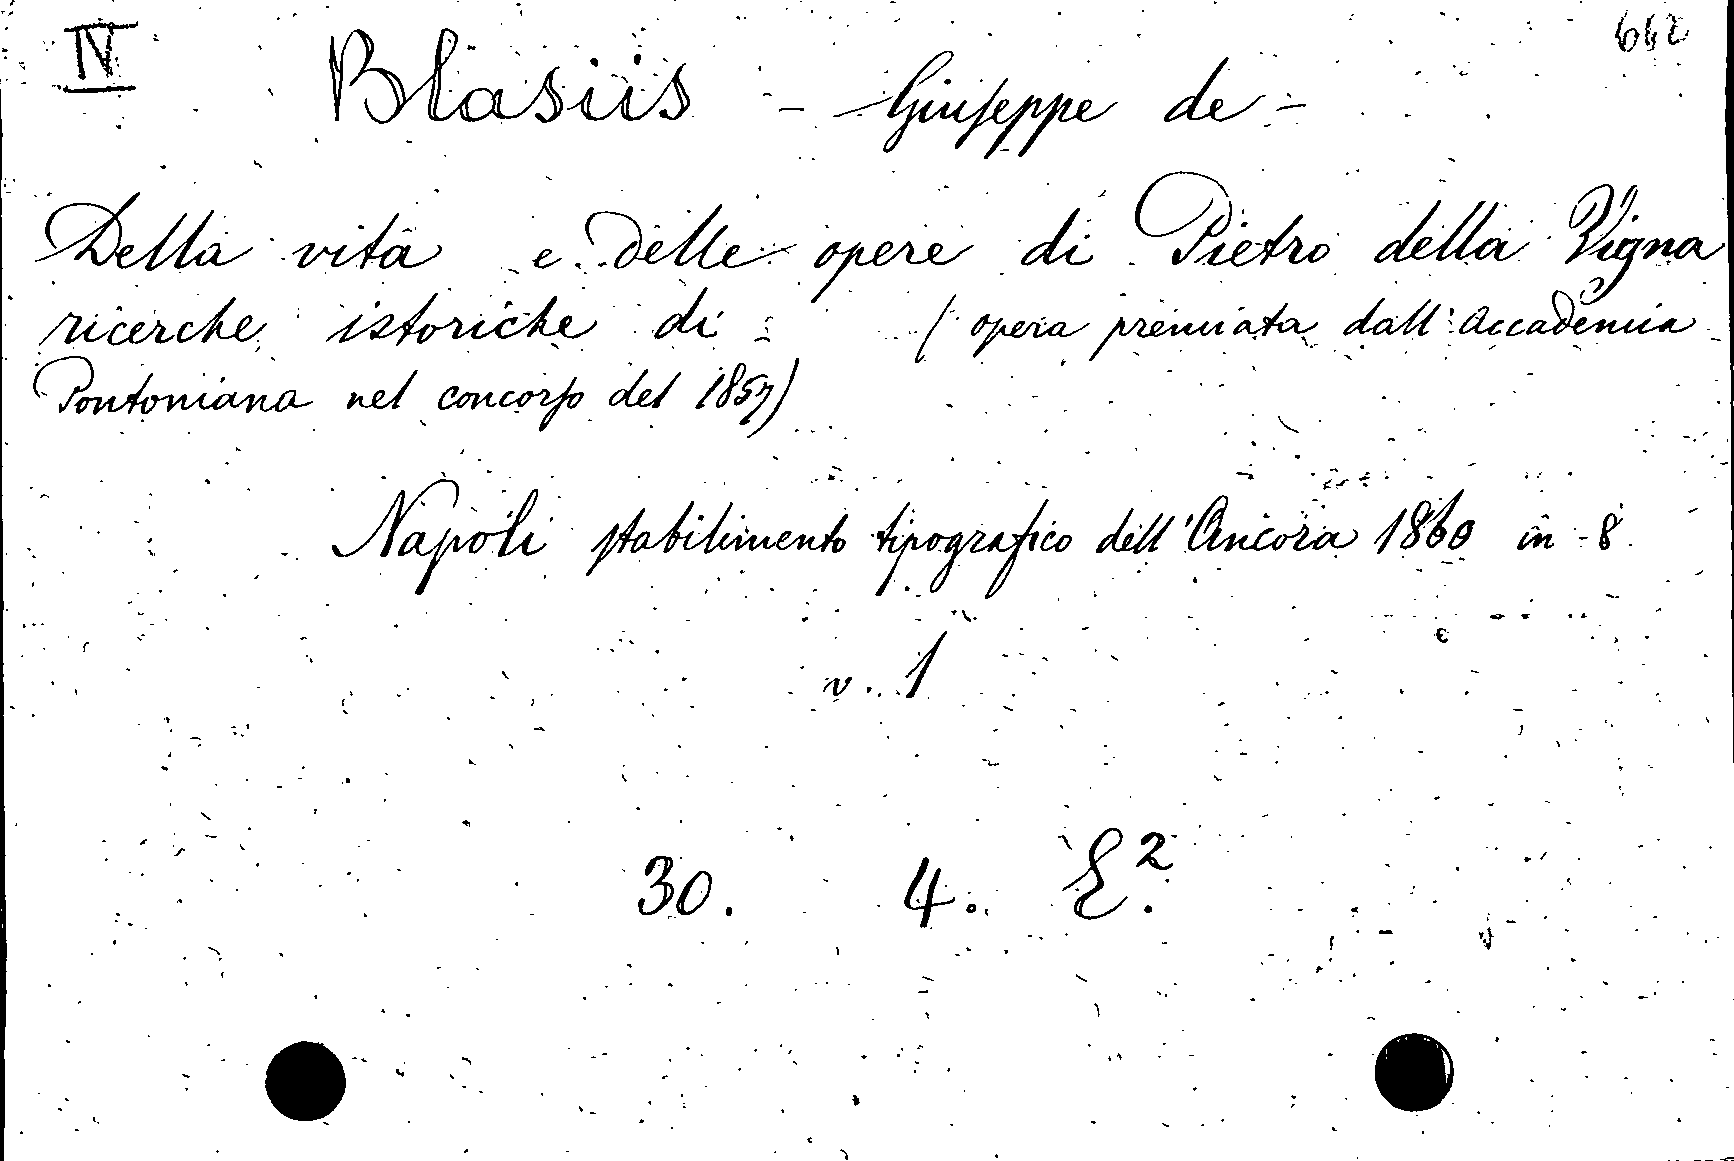 IV 642
Blasiis - Giuseppe de -
Della vita e delle opere di Pietro della Vigna
ricerche istoriche di - (opera premiata dall'Accademia
Pontoniana nel concorso del 1857)
Napoli stabilimento tipografico dell'Ancora 1860 in-8
v. 1
30. 4. E².